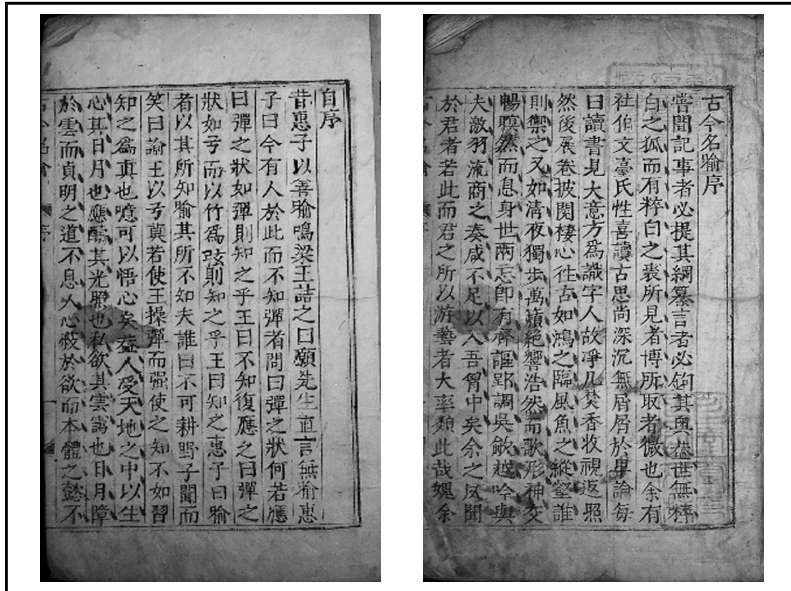 古今名喻序
嘗聞記事者必提其綱纂言者必鉤其玄葢世無粹
白之狐而有粹白之裘所見者博所取者微也余有
社伯文臺氏性喜讀古思尚深沉無屑屑於畢論每
曰讀書見大意方為識字人故凈几焚香收視返照
然後展卷披閱棲心徃古如鴻之臨風魚之縱壑誰
則禦之又如清夜獨步萬籟絕響浩然而歌形神交
暢瞑然而息身世兩忘卽有齊謳郢調吳歈越吟與
夫激羽流商之奏咸不足以入吾胷中矣余之夙聞
於君者若此而君之所以游藝者大率類此哉媿余
自序
昔惠子以善喻鳴梁王詰之曰願先生直言無喻惠
子曰今有人於此而不知彈者問曰彈之狀何若應
曰彈之狀如彈則知之乎王曰不知復應之曰彈之
狀如弓而以竹為弦則知之乎王曰知之惠子曰喻
者以其所知喻其所不知夫誰曰不可耕野子聞而
笑曰諭王以弓莫若使王操彈而强使之知不如習
知之為真也噫可以悟心矣葢人受天地之中以生
心其日月也應酬其光照也私欲其雲霧也日月障
於雲而貞明之道不息人心蔽於欲而本體之懿不